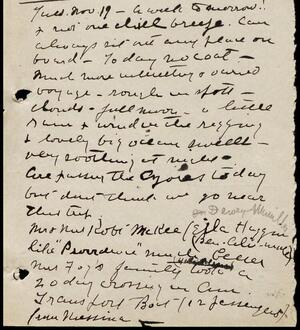 Tues. Nov 19 - a week tomorrow!!
+ not one chill breeze. Can
always sit out any place on
board - To day no coat -
Much more interesting + varied
voyage - rough in spots -
clouds - full moon - a little
rain + wind in the rigging
+ lovely big ocean swell -
very soothing at nights -
Are passing the Azores to day
but don't think we go near
this trip.
Mr + Mrs Robt McKee
like Providence" much better
Mrs Foy's family took a
20 day crossing in Am.
Transport Boat / 12 passengers)
from Messina